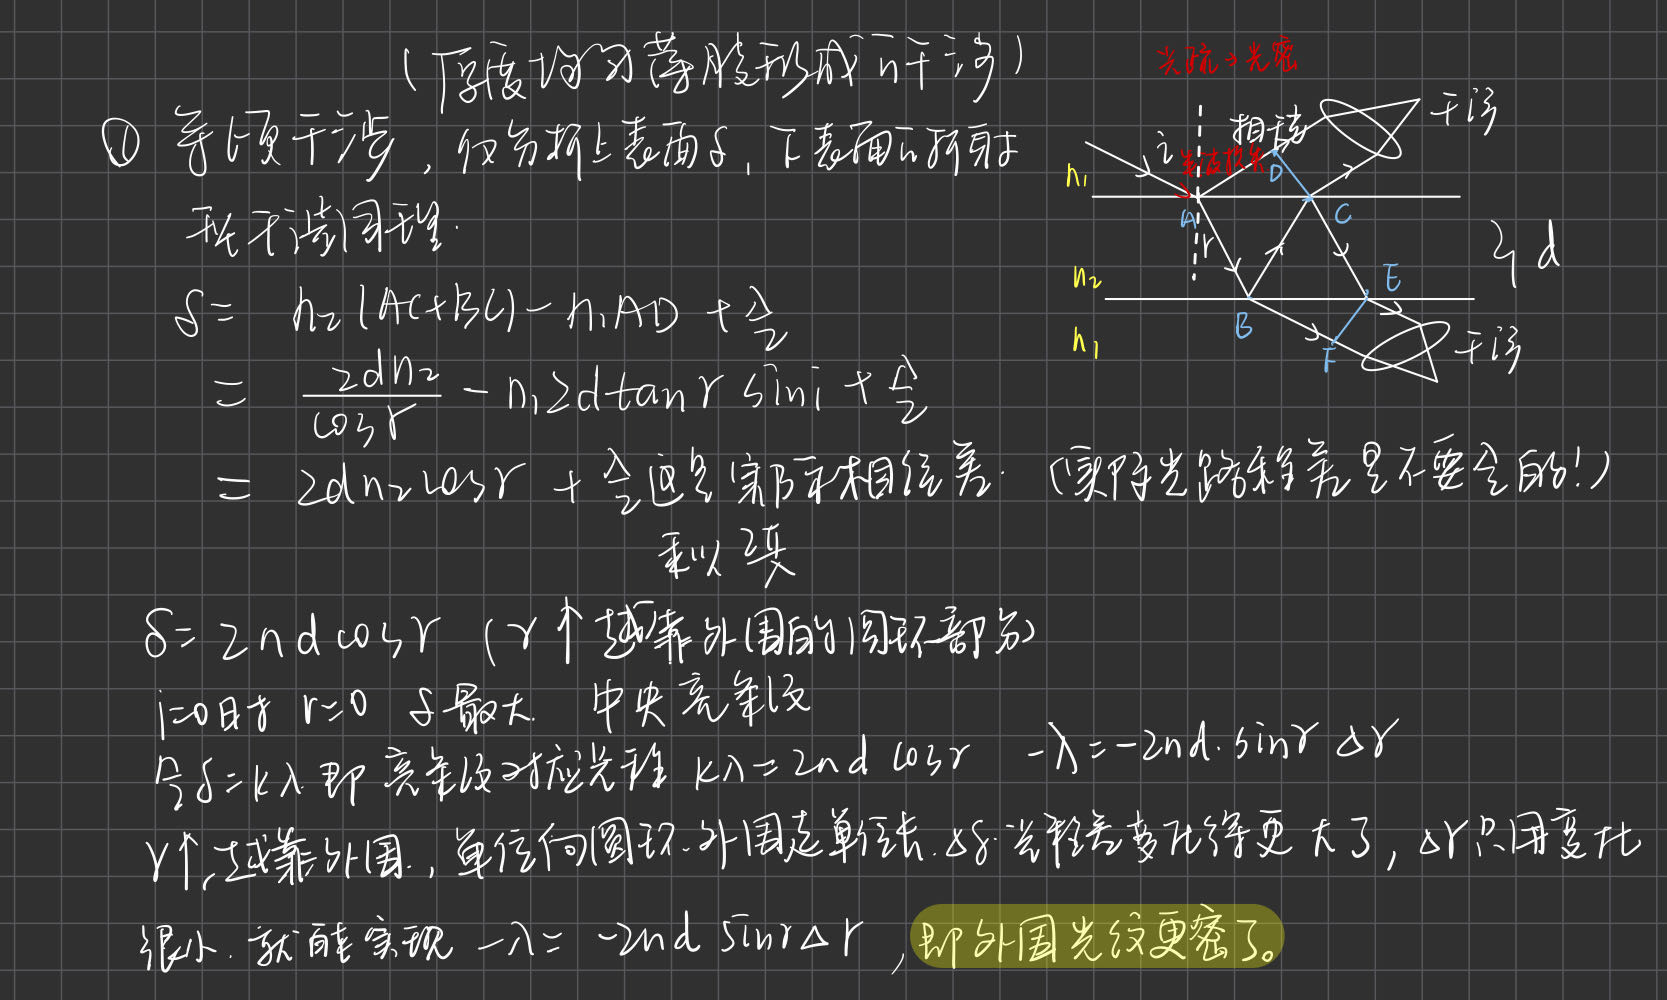 (厚度均匀薄膜形成的干涉)
① 等倾干涉，仅分析上表面δ，下表面的折射
形成干涉同理.
δ= n₂(AC+BC)-n₁AD+λ/2
= 2dn₂/cosr - n₁2dtanr sini + λ/2
= 2dn₂cosr + λ/2 这是实际相位差. (实际光路程差是不要全的!)
δ=2ndcosr (r↑越靠外围的圆环部分)
i=0时 r=0 δ最大. 中央亮条纹
令δ=kλ 即亮条纹对应光程 kλ=2nd cosr -λ=-2nd·sinrΔr
r↑,越靠外围,单位向圆环外围走单位长.Δδ.光程差变化得更大了,Δr只用变化
很小.就能实现 -λ= -2nd sinrΔr,即外围光纹更密了。
光疏→光密
半波损失
干涉
i
n₁
A
D
C
r
d
n₂
E
B
n₁
F
干涉